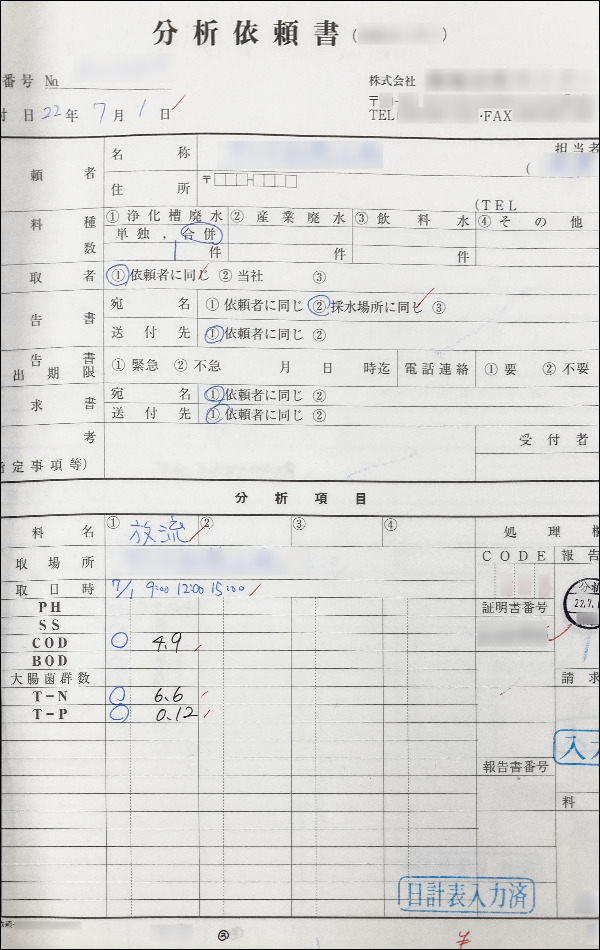 分析依頼書(
番号 No
株式会社
〒
TEL( ・FAX
付 日 22年 7月 1日
頼 者 名 称 担当者
(
住 所 〒
(TEL
料 種 ①浄化槽廃水 ②産業廃水 ③飲料水 ④その他
単独, 合併
数 1件 件 件
取 者 ①依頼者に同じ ②当社 ③
告 書 宛 名 ①依頼者に同じ ②採水場所に同じ ③
送付先 ①依頼者に同じ ②
告 書
出 期 限 ①緊急 ②不急 月 日 時迄 電話連絡 ①要 ②不要
求 書 宛 名 ①依頼者に同じ ②
送付先 ①依頼者に同じ ②
考 受付者
指定事項等)
分析項目
料 名 ① 放流 ② ③ ④ 処 理 欄
取 場 所 CODE 報告
取 日 時 7/1 9:00 12:00 15:00
PH 証明書番号 分析
SS 22.7.1
COD ○ 4.9
BOD
大腸菌群数 請求
T-N ○ 6.6
T-P ○ 0.12
入力
報告書番号
料
日計表入力済
③